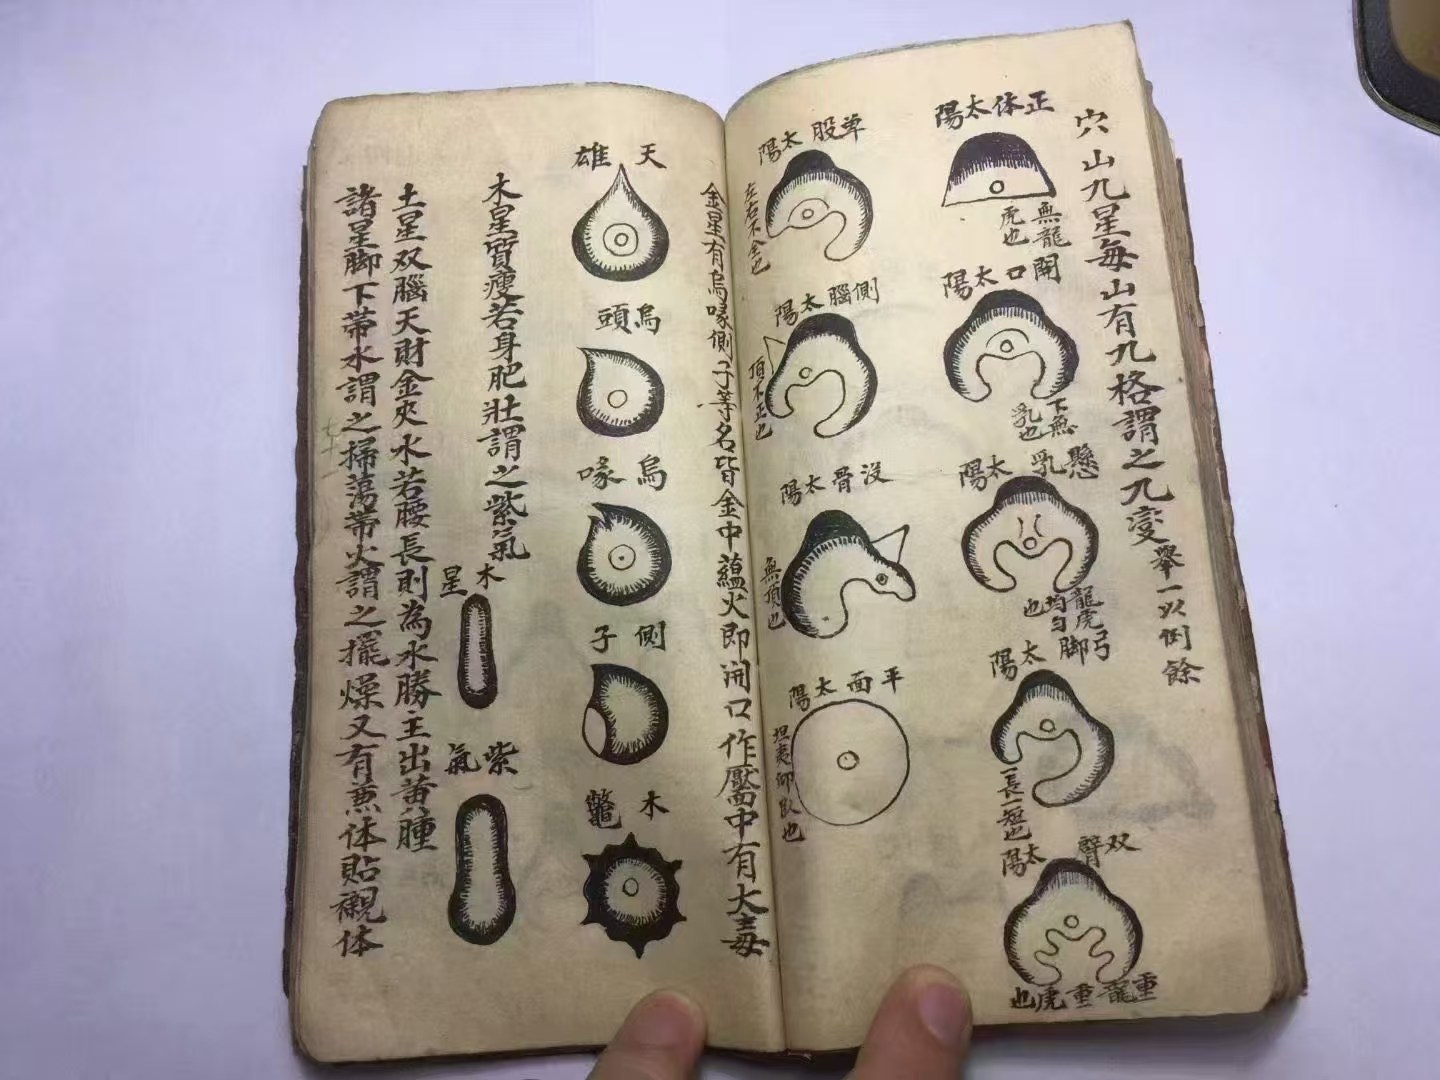 穴山九星每山有九格謂之九变舉一以例餘
正体太陽
無龍虎也
開口太陽
下無乳也
懸乳太陽
龍虎均匀也
弓脚太陽
一長一短也
双臂太陽
重龍重虎也
单股太陽
左右不全也
側腦太陽
頂不正也
没骨太陽
無頂也
平面太陽
坦夷仰臥也
金星有烏喙側子等名皆金中藴火即開口作靨中有大毒
天雄
烏頭
烏喙
側子
木鼈
木星質瘦若身肥壯謂之紫氣
木星
紫氣
土星双腦天財金夾水若腰長則為水勝主出黃腫
諸星脚下帶水謂之掃蕩帶火謂之擺燥又有兼体貼襯体